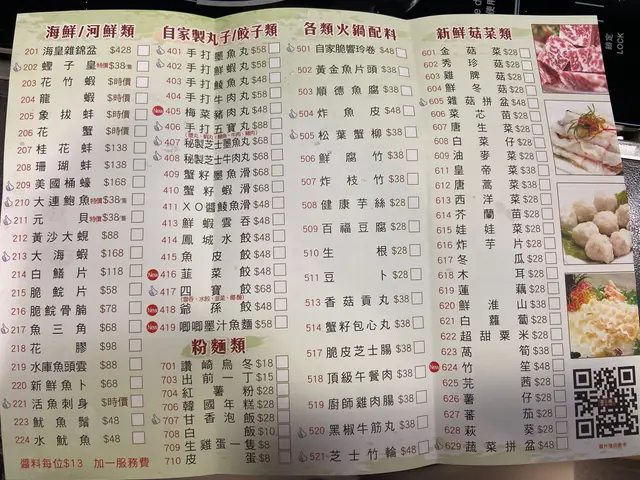 海鮮/河鮮類
201 海皇雜錦盆 $428
202 蟶子皇 特價$38/隻
203 花竹蝦 $時價
204 龍蝦 $時價
205 象拔蚌 $時價
206 花蟹 $時價
207 桂花蚌 $138
208 珊瑚蚌 $138
209 美國桶蠔 $168
210 大連鮑魚 特價$38/隻
211 元貝 特價$38/隻
212 黃沙大蜆 $88
213 大海蝦 $168
214 白鱔片 $118
215 脆鯇片 $58
216 脆鯇骨腩 $78
217 魚三角 $68
218 花膠 $98
219 水庫魚頭雲 $88
220 新鮮魚卜 $68
221 活魚刺身 $時價
223 魷魚鬚 $48
224 水魷魚 $48
醬料每位$13 加一服務費
自家製丸子/餃子類
401 手打墨魚丸 $58
402 手打鮮蝦丸 $58
403 手打鯪魚丸 $48
404 手打牛肉丸 $58
New 405 梅菜豬肉丸 $48
406 手打五寶丸 $68
407 秘製芝士墨魚丸 $68
408 秘製芝士牛肉丸 $68
409 蟹籽墨魚滑 $68
410 蟹籽蝦滑 $68
411 XO醬鯪魚滑 $48
413 鮮蝦雲吞 $48
414 鳳城水餃 $48
415 魚皮餃 $48
New 416 韮菜餃 $48
417 四寶餃 $68
New 418 爺孫餃 $48
New 419 唧唧墨汁魚麵 $58
粉麵類
701 讚崎烏冬 $18
703 出前一丁 $15
704 紅薯粉 $28
706 韓國年糕 $28
707 甘香泡飯 $28
708 白飯 $10
709 生雞蛋一隻 $8
710 皮蛋 $8
各類火鍋配料
501 自家脆響玲卷 $48
502 黃金魚片頭 $38
503 順德魚腐 $38
504 炸魚皮 $48
505 松葉蟹柳 $38
506 鮮腐竹 $38
507 炸枝竹 $38
508 健康芋絲 $28
509 百福豆腐 $28
510 生根 $28
511 豆卜 $28
513 香菇貢丸 $38
514 蟹籽包心丸 $38
517 脆皮芝士腸 $38
518 頂級午餐肉 $38
519 廚師雞肉腸 $38
520 黑椒牛筋丸 $38
521 芝士竹輪 $48
新鮮菇菜類
601 金菇菜 $28
602 秀珍菇 $28
603 雞脾菇 $28
604 鮮冬菇 $28
605 雜菇拼盆 $48
606 菜芯苗 $28
607 唐生菜 $28
608 白菜仔 $28
609 油麥菜 $28
611 皇帝菜 $38
612 唐蒿菜 $38
613 西洋菜 $28
614 芥蘭苗 $28
615 娃娃菜 $28
616 炸芋片 $38
617 冬瓜 $28
618 木耳 $28
619 蓮藕 $28
620 鮮淮山 $38
621 白蘿蔔 $28
622 超甜粟米 $28
623 萵筍 $38
New 624 竹笙 $38
625 芫茜 $28
626 薯仔 $28
627 蕃茄 $28
628 萩葵 $38
629 蔬菜拼盆 $48
鎖定
LOCK